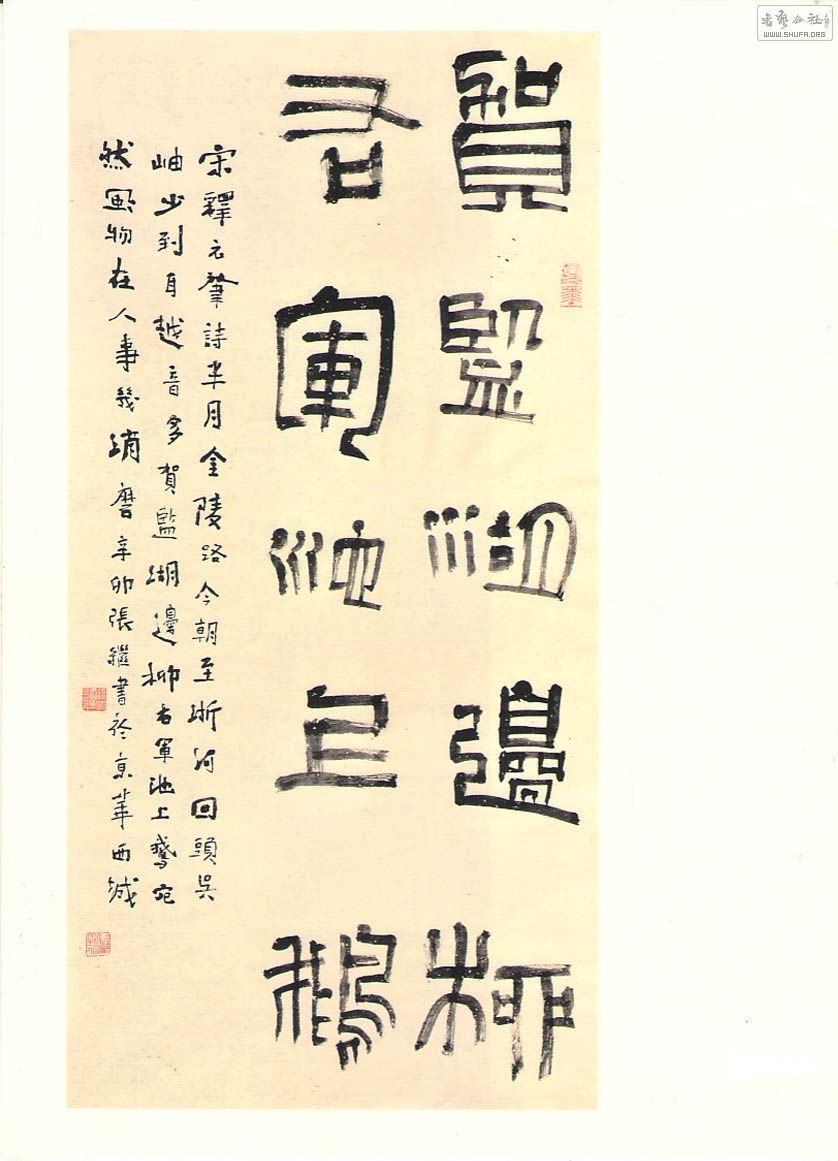 賀監湖邊柳
右軍池上鵝
宋釋元肇詩半月金陵路今朝至浙河回頭吳
岫少到耳越音多賀監湖邊柳右軍池上鵝宛
然風物在人事幾消磨辛卯張繼書於京華西城
書藝公社
WWW.SHUFA.ORG